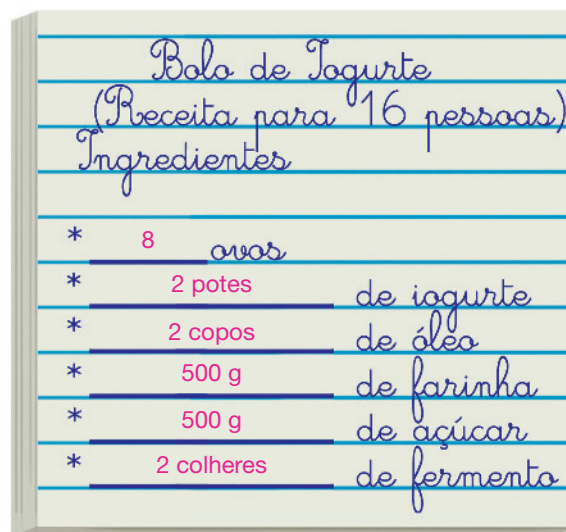 Bolo de Iogurte
(Receita para 16 pessoas)
Ingredientes
* 8 ovos
* 2 potes de iogurte
* 2 copos de óleo
* 500 g de farinha
* 500 g de açúcar
* 2 colheres de fermento